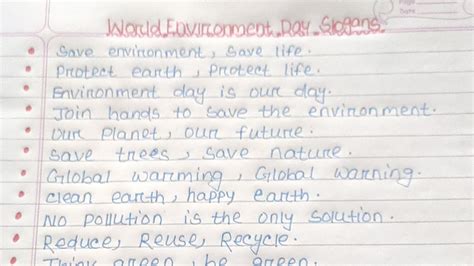 World Environment Day Slogans
Save environment, Save life.
Protect earth, Protect life.
Environment day is our day.
Join hands to save the environment.
Our Planet, our future.
Save trees, save nature.
Global warming, Global warning.
Clean earth, happy earth.
No Pollution is the only solution.
Reduce, Reuse, Recycle.
Think green, be green.